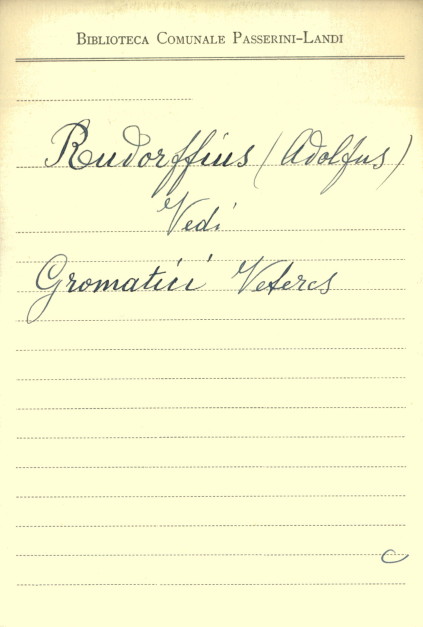 Biblioteca Comunale Passerini-Landi
Rudorffius (Adolfus)
Vedi
Gromatici Veteres
C